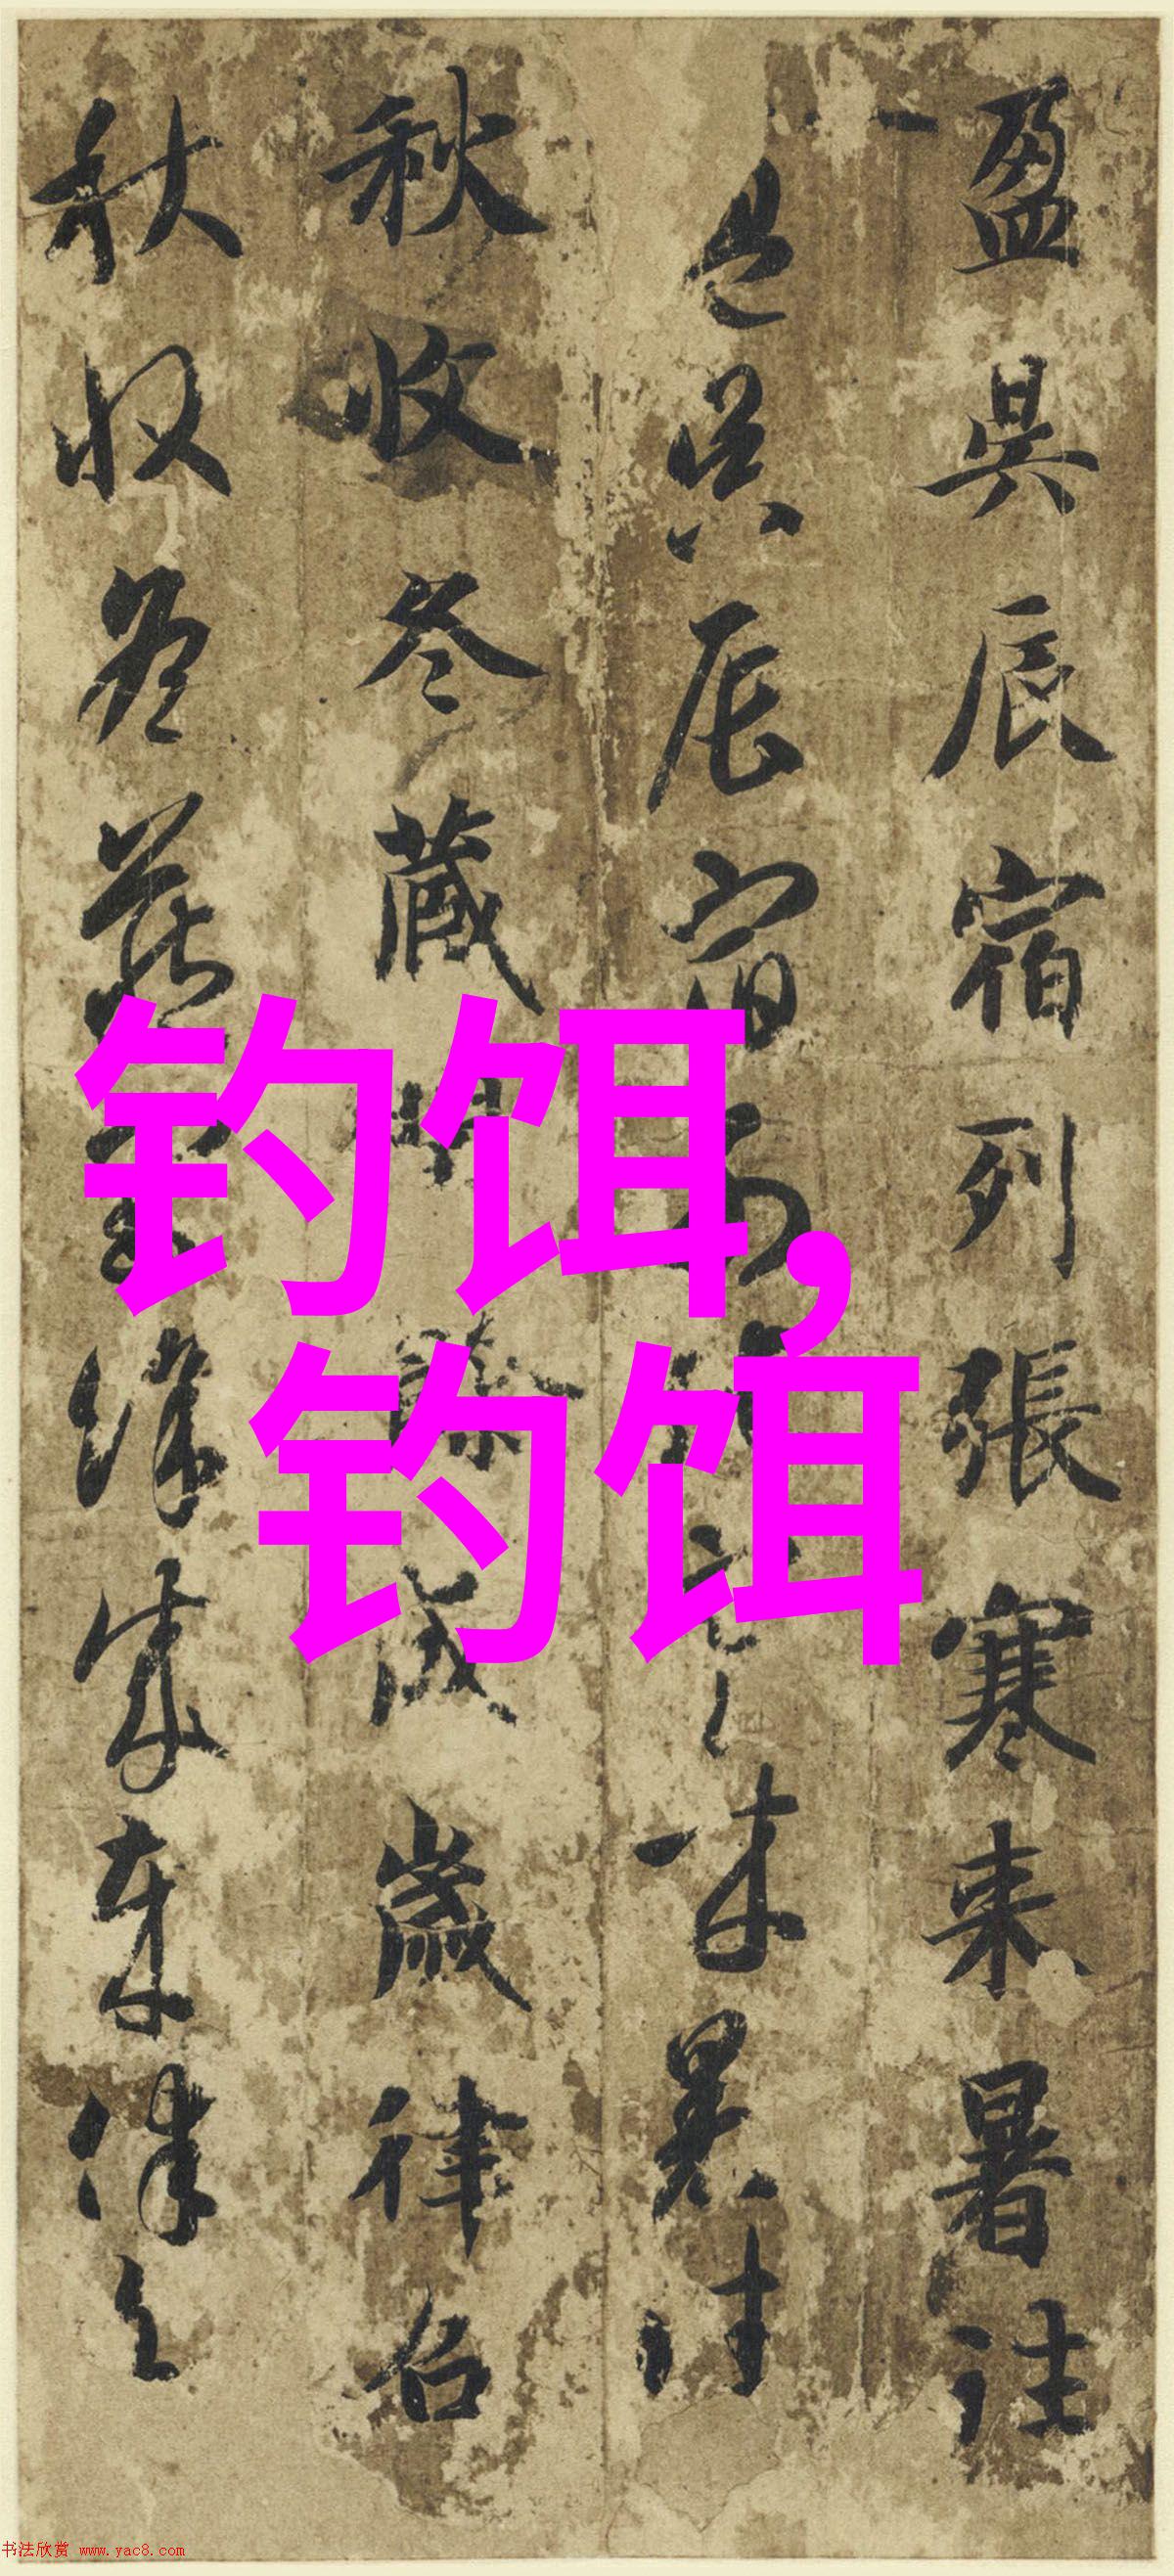 盈昃辰宿列張寒来暑往
盈昃辰宿来暑往
秋收冬藏成歲律召
秋收冬藏餘成歲律召
钓饵,
钓饵
书法欣赏 www.yac8.com